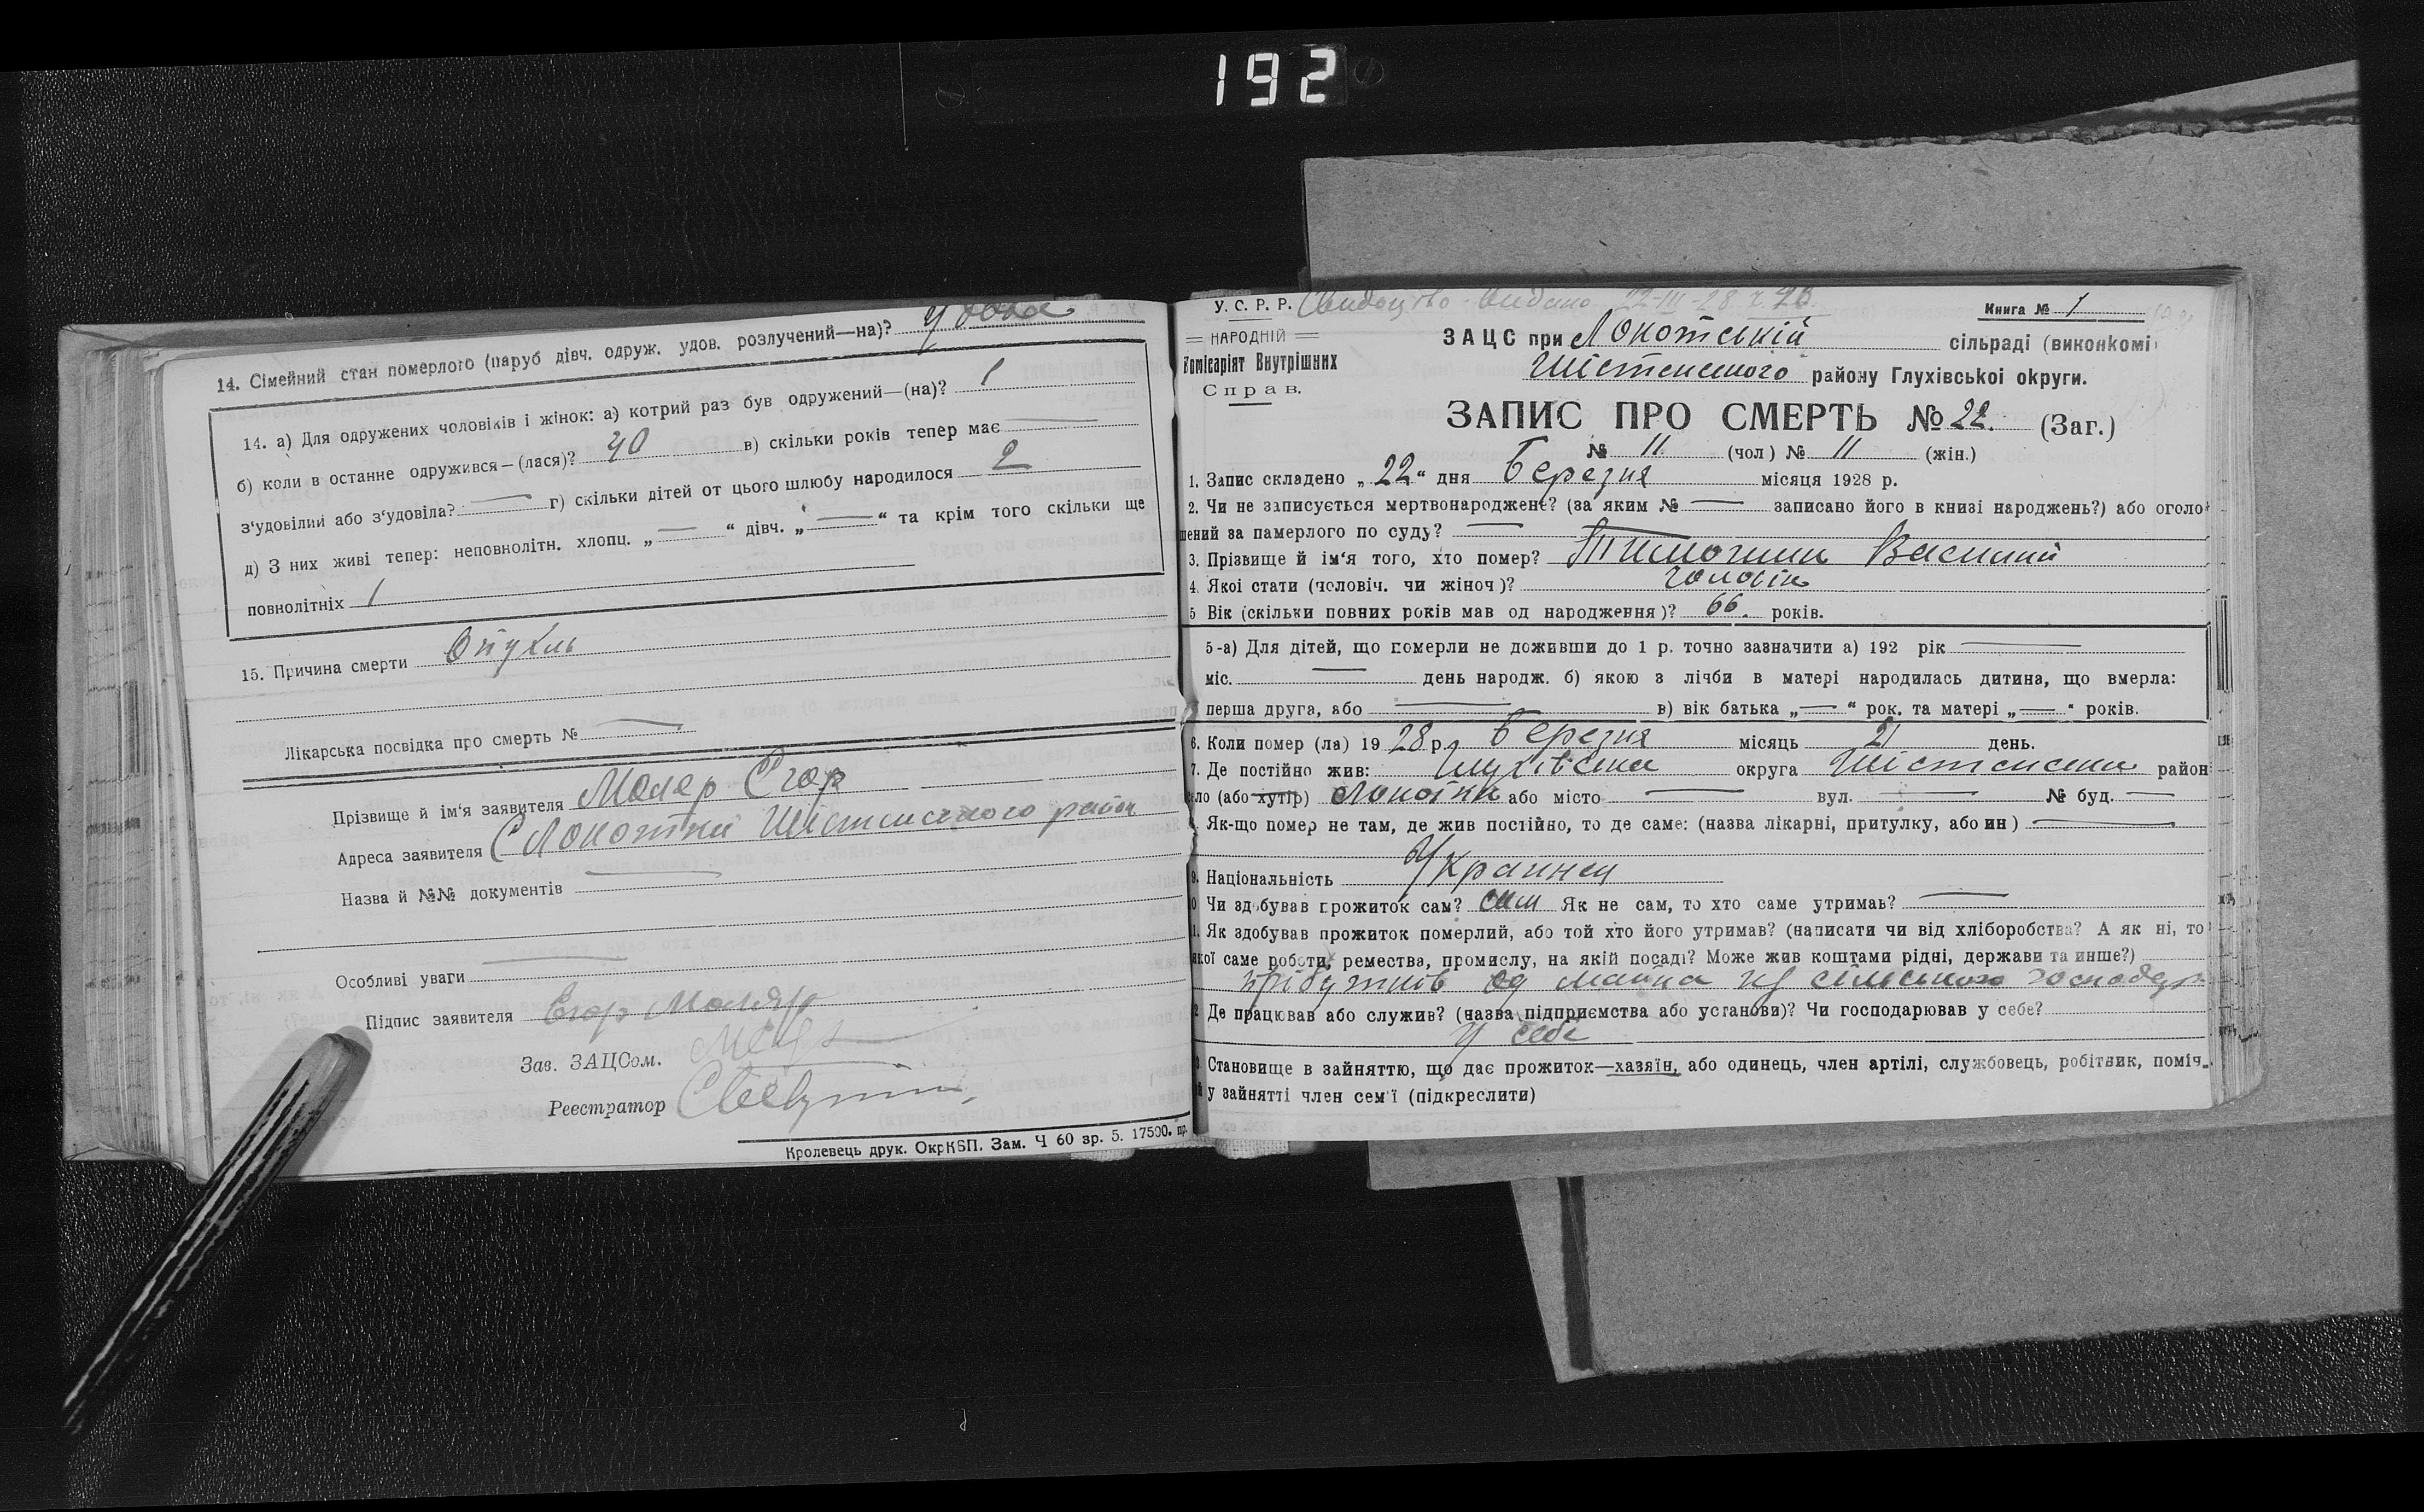 192
14. Сімейний стан померлого (паруб дівч. одруж. удов. розлучений—на)? удова
14. а) Для одружених чоловіків і жінок: а) котрий раз був одружений—(на)? 1
б) коли в останнє одружився—(лася)? 40 в) скільки років тепер має —
з'удовілий або з'удовіла? — г) скільки дітей от цього шлюбу народилося 2
д) З них живі тепер: неповнолітн. хлопц. „ — “ дівч. „ — “ та крім того скільки ще
повнолітніх 1
15. Причина смерти Опухль
Лікарська посвідка про смерть № —
Прізвище й ім'я заявителя Моляр Єгор
Адреса заявителя С Локотки Шістенського район
Назва й №№ документів —
Особливі уваги —
Підпис заявителя Егор Моляр
Зав. ЗАЦСом.
Реестратор
Кролевець друк. ОкрКБП. Зам. Ч 60 зр. 5. 17500. пр.
У. С. Р. Р. Свидоцтво видано 22-III-28 г.
Книга № 1
НАРОДНІЙ
Комісаріят Внутрішних
Справ.
ЗАЦС при Локотській сільраді (виконкомі
Шістенського району Глухівської округи.
ЗАПИС ПРО СМЕРТЬ № 22. (Заг.)
№ 11 (чол) № 11 (жін.)
1. Запис складено „ 22 “ дня Березня місяця 1928 р.
2. Чи не записується мертвонароджене? (за яким № — записано його в книзі народжень?) або оголо
шений за памерлого по суду? —
3. Прізвище й ім'я того, хто помер? Тимошин Василий
4. Якої стати (чоловіч. чи жіноч)? чоловік
5 Вік (скільки повних років мав од народження)? 66. років.
5-а) Для дітей, що померли не доживши до 1 р. точно зазначити а) 192 рік —
міс. — день народж. б) якою з лічби в матері народилась дитина, що вмерла:
перша друга, або — в) вік батька „ — “ рок. та матері „ — “ років.
6. Коли помер (ла) 19 28 р. Березня місяць 21 день.
7. Де постійно жив: Глухівська округа Шістенська район
ло (або хутір) Локотки або місто — вул. — № буд. —
Як-що помер не там, де жив постійно, то де саме: (назва лікарні, притулку, або ин) —
9. Національність Украинец
0 Чи здобував прожиток сам? сам Як не сам, то хто саме утримав? —
1. Як здобував прожиток померлий, або той хто його утримав? (написати чи від хліборобства? А як ні, то
якої саме роботи, ремества, промислу, на якій посаді? Може жив коштами рідні, держави та инше?)
прібутків од майна із сільського господар
2 Де працював або служив? (назва підприємства або установи)? Чи господарював у себе?
У себе
3 Становище в зайняттю, що дає прожиток—хазяїн, або одинець, член артілі, службовець, робітник, поміч
й у зайнятті член сем'ї (підкреслити)